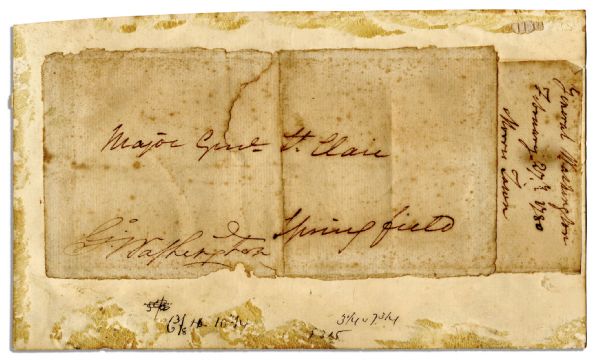 Major Genl. St. Clair
Springfield
Go: Washington
General Washington
February 27th. 1780
Morris Town
3 1/4 x 7 3/4